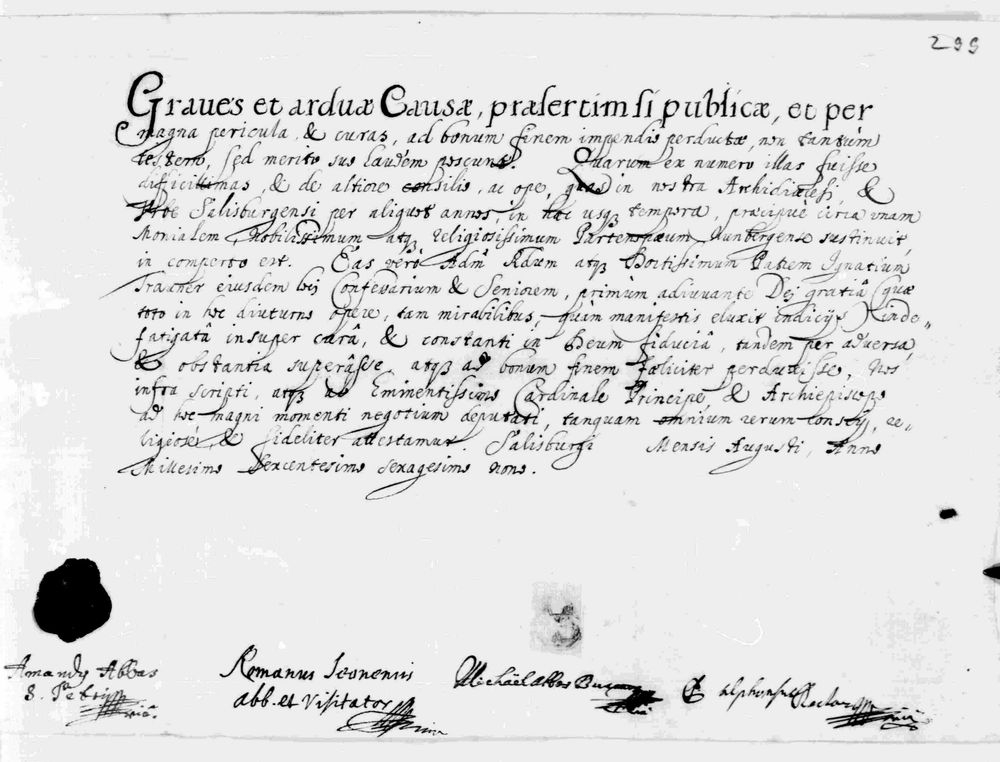 299
Graves et arduæ Causæ, præsertim si publicæ, et per
magna pericula, & curas, ad bonum finem impendio perductæ, non tantùm
testem, sed meritò suo laudem poscunt. Quarum ex numero illas fuisse
difficillimas, & de altiore consilio, ac ope, quas in nostra Archidiœcesi, &
Urbe Salisburgensi per aliquot annos, in hæc usq tempora, præcipuè circa unam
Monialem, nobilissimum atq religiosissimum Partenonæum Nunbergense sustinuit,
in comperto est. Eas verò Admᵐ Rdum atq Doctissimum Patrem Ignatium
Trauner eiusdem loci Confessarium & Seniorem, primùm adiuvante Dei gratiâ (quæ
toto in hoc diuturno opere, tam mirabilibus, quàm manifestis eluxit indicijs) inde„
fatigatâ insuper curâ, & constanti in Deum fiduciâ, tandem per adversa,
& obstantia superâsse, atq ad bonum finem fæliciter perduxisse, Nos
infra scripti, atq ab Eminentissimo Cardinale Principe & Archiepiscopo
ad hoc magni momenti negotium deputati, tanquam omnium rerum conscij, re„
ligiosè, & fideliter attestamur. Salisburgi Mensis Augusti, Anno
Millesimo Sexcentesimo sexagesimo nono.
Amandus Abbas
S. Petri
Romanus Seonensis
abb. et Visitator
Michäel Abbas
P. Alphonsus